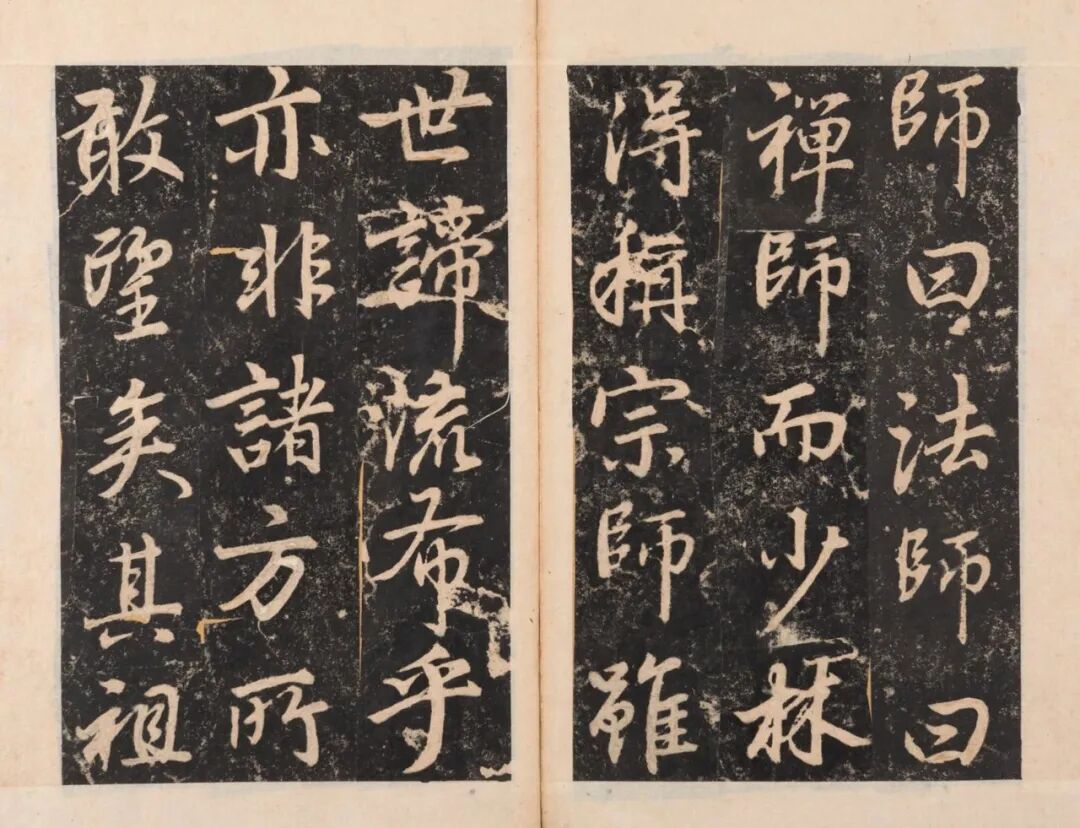 師曰法師曰
禅師而少林
得稱宗師雖
世諦流布乎
亦非諸方所
敢望矣其祖